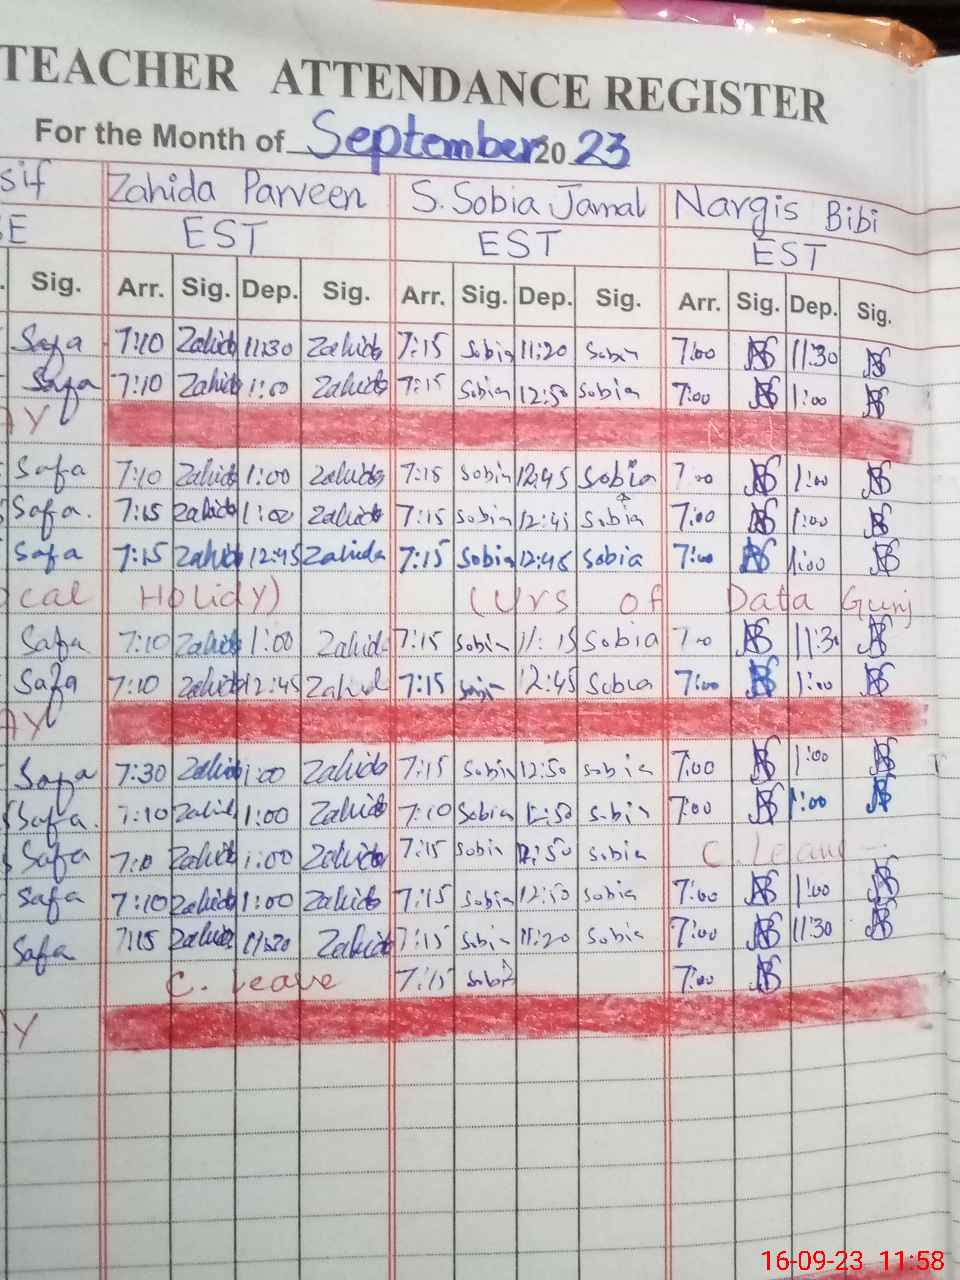 TEACHER ATTENDANCE REGISTER
For the Month of September 2023
sif Zahida Parveen S. Sobia Jamal Nargis Bibi
E EST EST EST
Sig. Arr. Sig. Dep. Sig. Arr. Sig. Dep. Sig. Arr. Sig. Dep. Sig.
Safa 7:10 Zahida 11:30 Zahida 7:15 Sobia 11:20 Sobia 7:00 11:30
Safa 7:10 Zahida 1:00 Zahida 7:15 Sobia 12:50 Sobia 7:00 1:00
AY
Safa 7:10 Zahida 1:00 Zahida 7:15 Sobia 12:45 Sobia 7:00 1:00
Safa. 7:15 Zahida 1:00 Zahida 7:15 Sobia 12:45 Sobia 7:00 1:00
Safa 7:15 Zahida 12:45 Zahida 7:15 Sobia 12:45 Sobia 7:00 1:00
cal Holidy) (Urs of Data Gunj
Safa 7:10 Zahida 1:00 Zahida 7:15 Sobia 11:15 Sobia 7:00 11:30
Safa 7:10 Zahida 12:45 Zahida 7:15 Sobia 12:45 Sobia 7:00 1:00
AY
Safa 7:30 Zahida 1:00 Zahida 7:15 Sobia 12:50 Sobia 7:00 1:00
Safa. 7:10 Zahida 1:00 Zahida 7:10 Sobia 12:50 Sobia 7:00 1:00
Safa 7:10 Zahida 1:00 Zahida 7:15 Sobia 12:50 Sobia C. Leave
Safa 7:10 Zahida 1:00 Zahida 7:15 Sobia 12:50 Sobia 7:00 1:00
Safa 7:15 Zahida 11:20 Zahida 7:15 Sobia 11:20 Sobia 7:00 11:30
C. leave 7:15 Sobia 7:00
Y
16-09-23 11:58